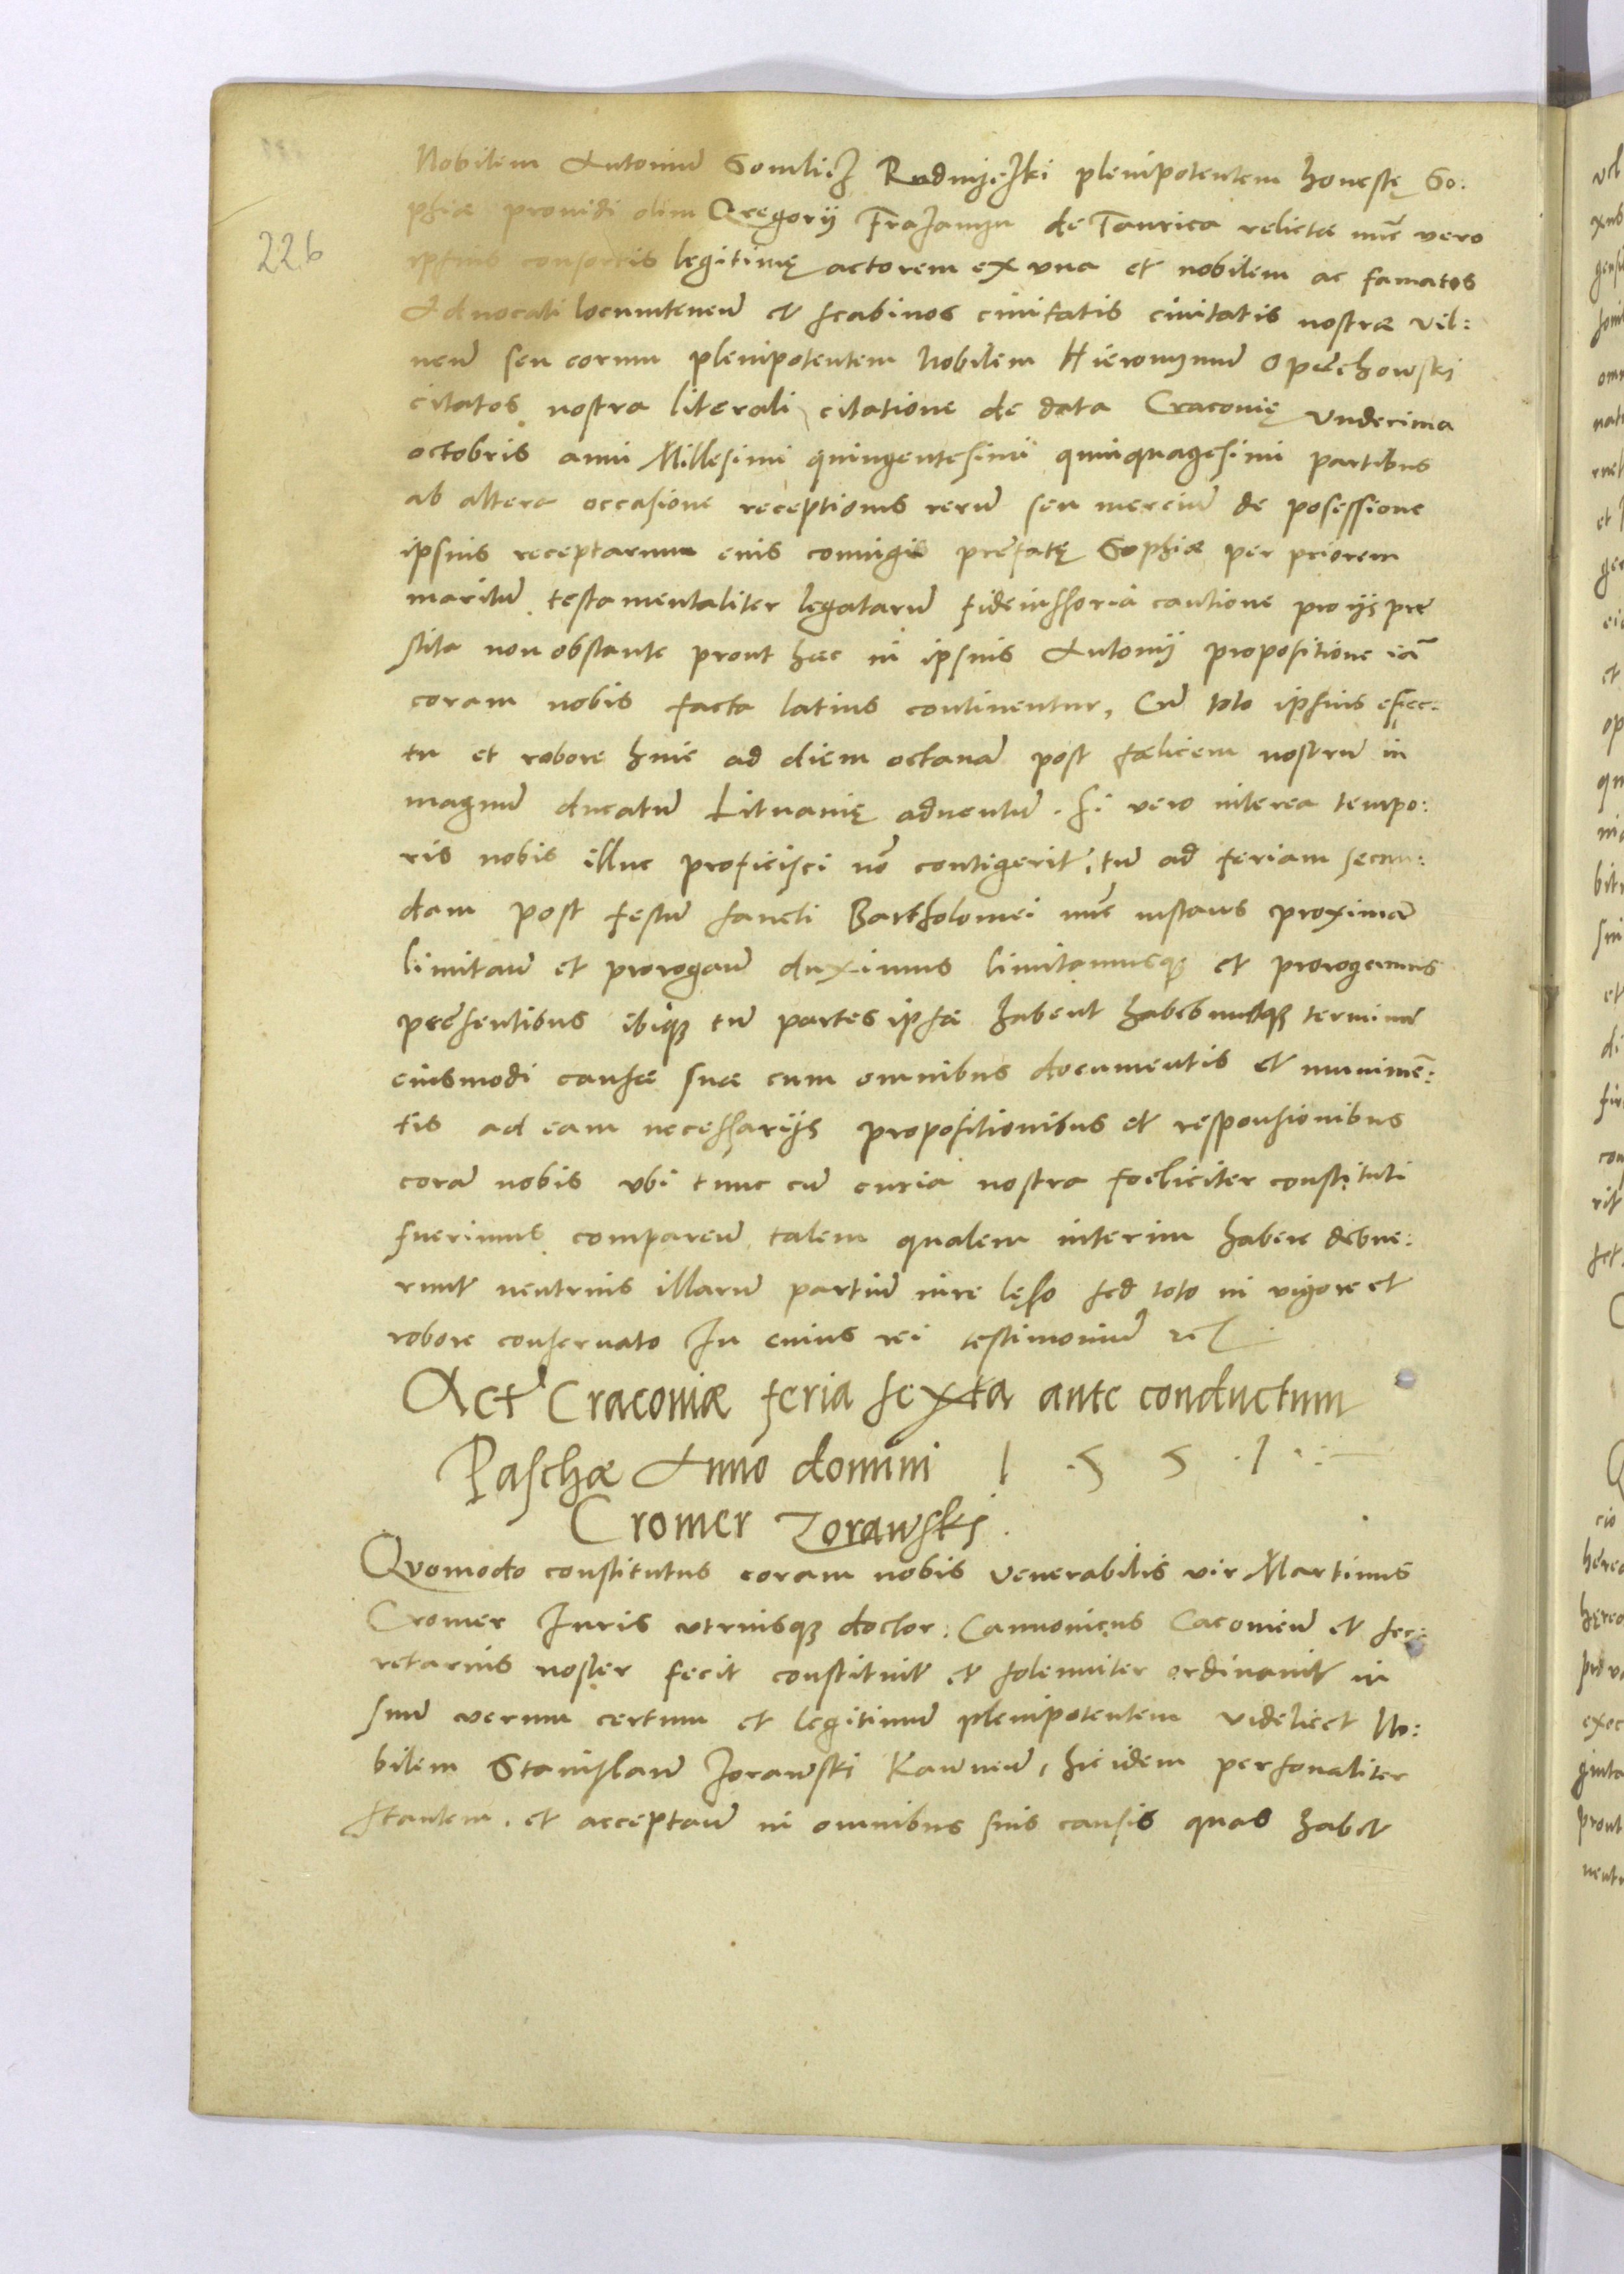 226
Nobilem Antoniu͂ Gomliez Rudniczki plenipotentem honestę So:
phiæ prouidi olim Gregorij Frazanczyn de Taurica relictæ nu͂c vero
ipsius consortis legitimę actorem ex vna et nobilem ac famatos
Aduocati locumtenen͂ et scabinos ciuitatis ciuitatis nostræ Vil:
nen͂ seu eorum plenipotentem Nobilem Hieronymu͂ Opęchowski
citatos nostra literali citatione de data Cracouię Vndecima
octobris anni Millesimi quingentesimi quinquagesimi partibus
ab altera occasione receptionis reru͂ seu merciu͂ de posessione
ipsius receptarum eius coniugis prefatę Sophiæ per priorem
maritu͂ testamentaliter legataru͂ fideiussoria cautione pro ijs præ
stita non obstante prout hæc in ipsius Antonij propositione ia͂
coram nobis facta latius continentur, Cu͂ toto ipsius effec:
tu et robore hinc ad diem octaua͂ post fælicem nostru͂ in
magnu͂ ducatu͂ Lituanię aduentu͂. Si vero interea tempo:
ris nobis illuc proficisci no͂ contigerit, tu͂ ad feriam secun:
dam post festu͂ sancti Bartholomei nu͂c instans proxima͂
limitan͂ et prorogan͂ duximus limitamusq; et prorogamus
præsentibus ibiq; tu͂ partes ipsæ habent habebuntq; terminu͂
eiusmodi causæ suæ cum omnibus documentis et munime͂:
tis ad eam necessarijs propositionibus et responsionibus
cora͂ nobis vbi tunc cu͂ curia nostra foeliciter constituti
fuerimus comparen͂ talem qualem interim habere debue:
runt neutrius illaru͂ partiu͂ iure lęso sed toto in vigore et
robore conseruato In cuius rei testimoniu͂ etc
Act Cracouiæ feria sexta ante conductum
Paschæ Anno domini 1 . 5 5 . 1 .
Cromer Zorawski.
Quomodo constitutus coram nobis Venerabilis vir Martinus
Cromer Iuris vtriusq; doctor. Cannonicus Cacouien͂ et sec:
retarius noster fecit constituit et solemniter ordinauit in
suu͂ verum certum et legitimu͂ plenipotentem videlicet No:
bilem Stanislau͂ Zorawski Kawnen͂, hic idem personaliter
stantem. et acceptan͂ in omnibus suis causis quas habet